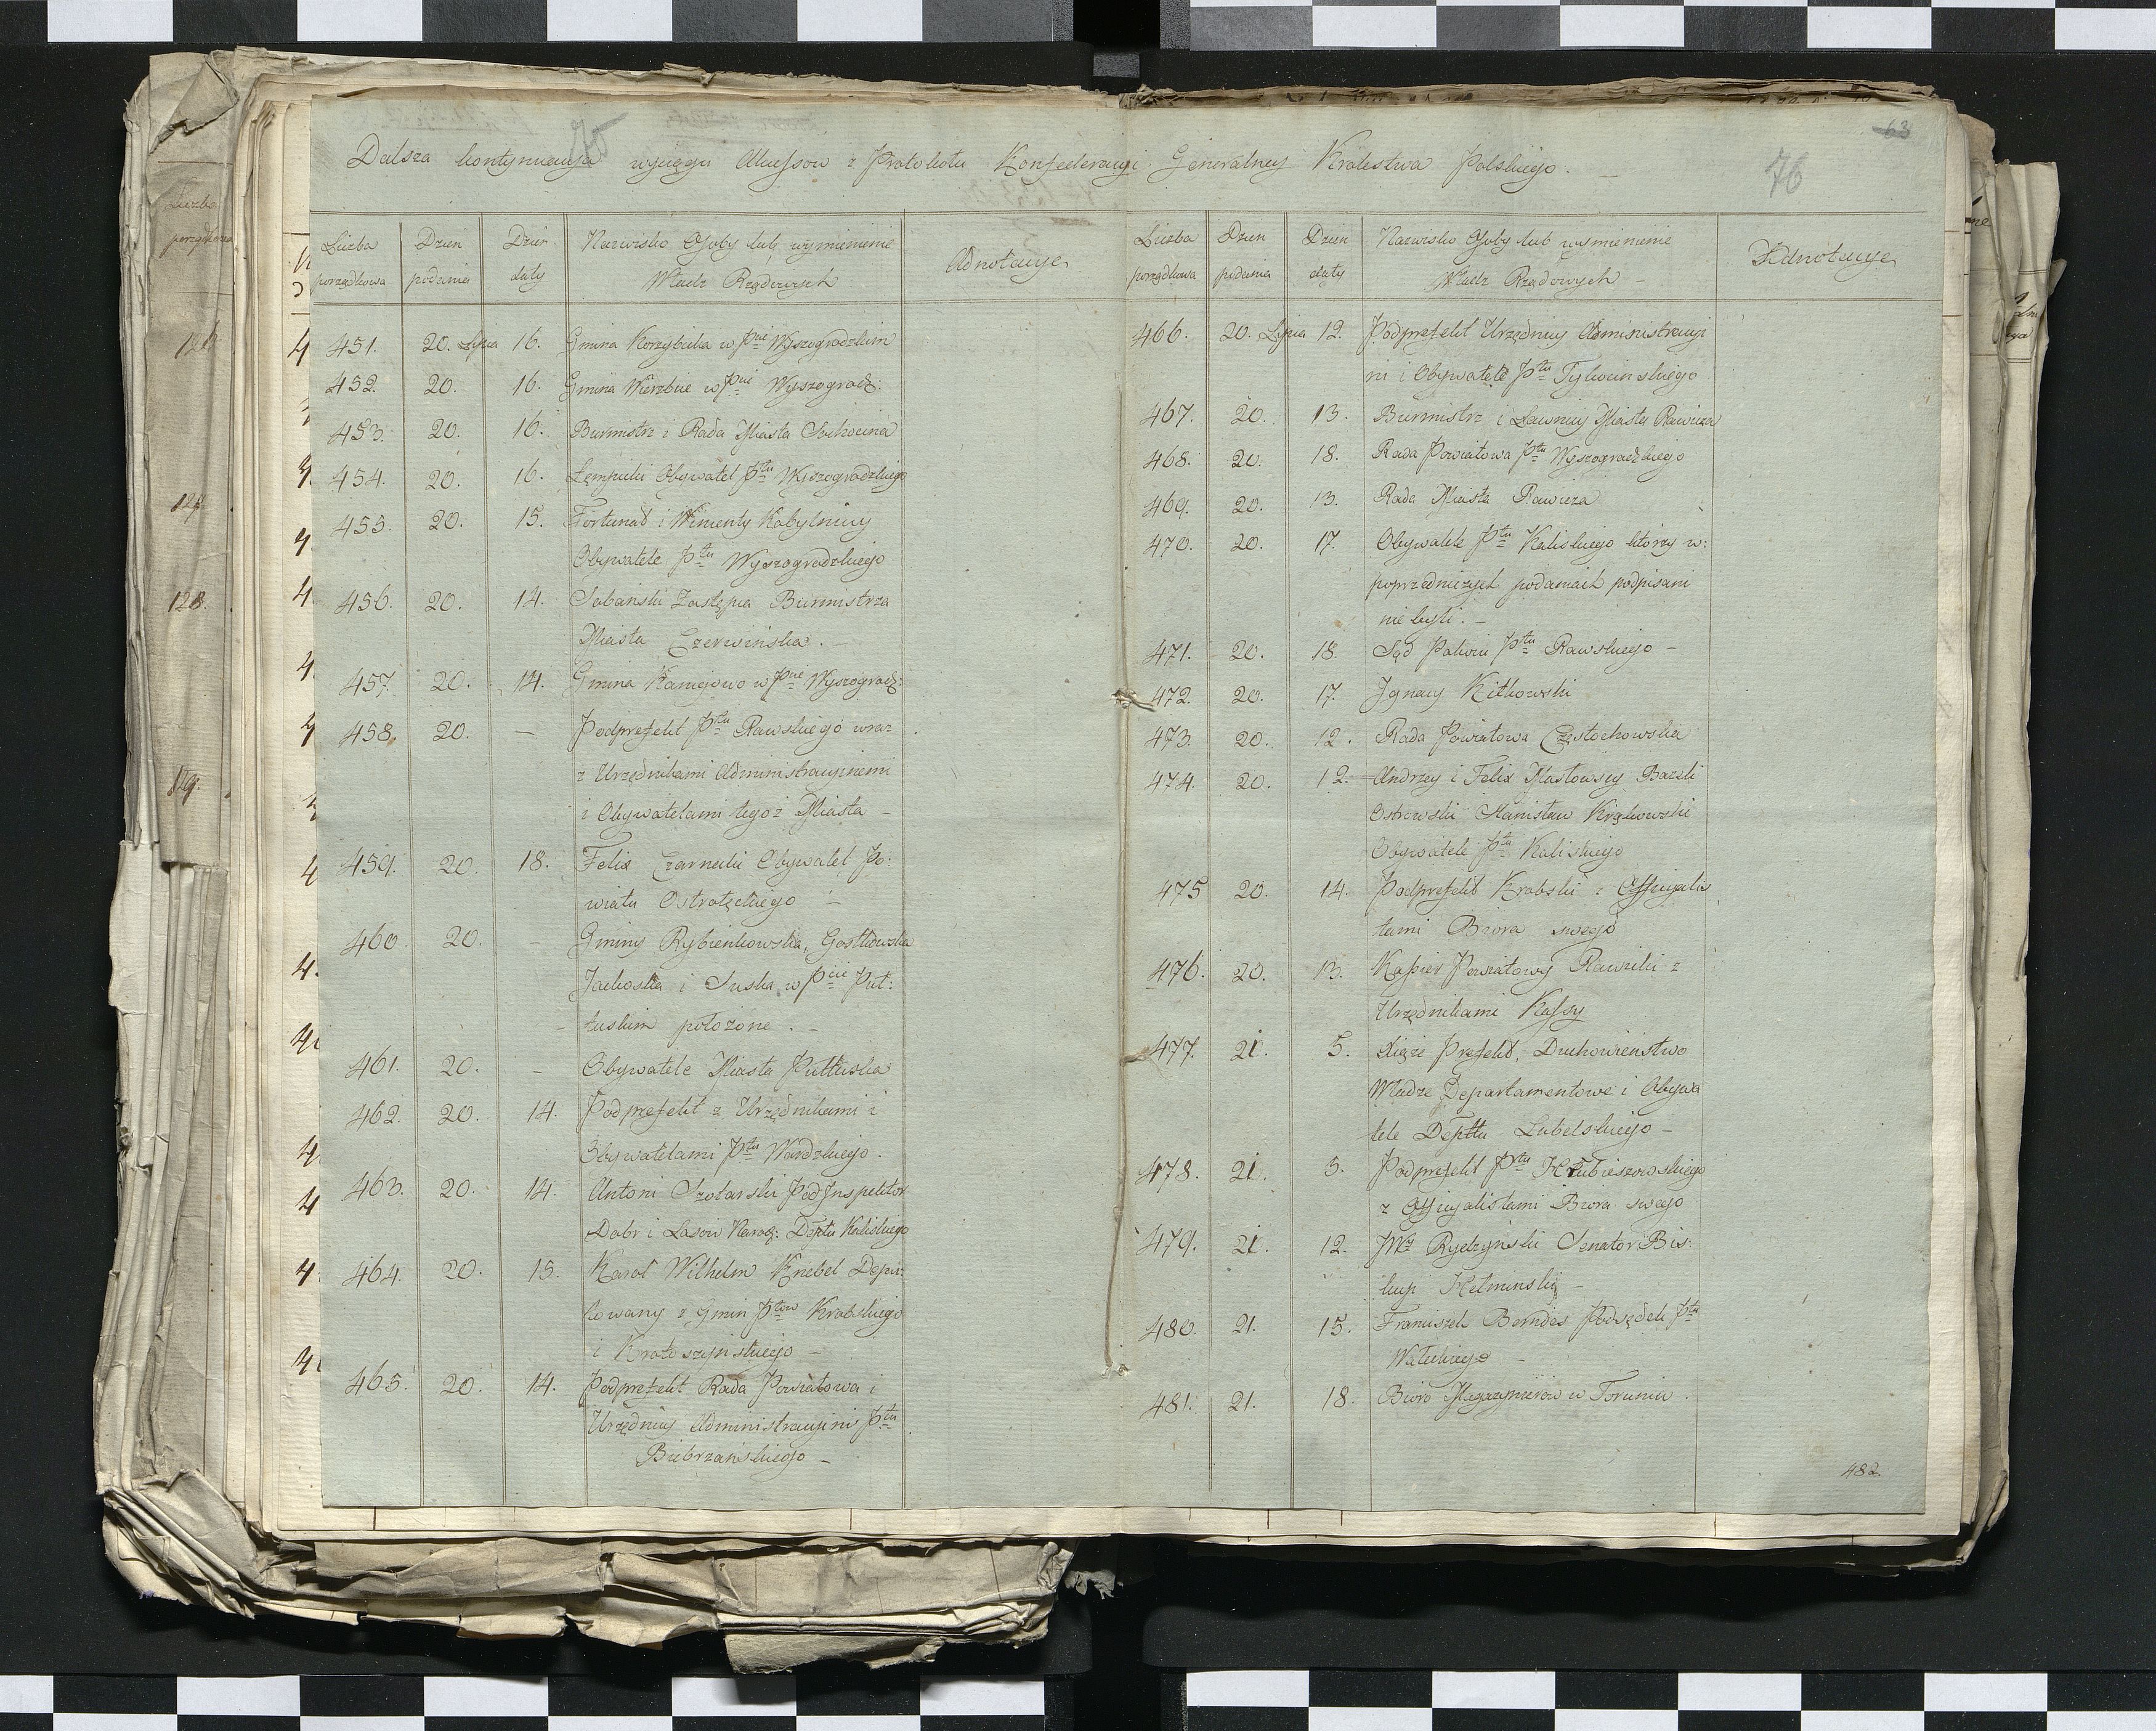 63
75
76
Dalsza kontynuacya wyciągu Akcessow z Protokołu Konfederacyi Generalney Krolestwa Polskiego. —
Liczba porządkowa
Dzien podania
Dzien daty
Nazwisko Osoby lub wymienienie
Władz Rządowych
Adnotacye
451. 20. Lipca 16. Gmina Korzybicka w Pcie Wyszogrodzkim
452. 20. 16. Gmina Wierzbie w Pcie Wyszogrodz:
453. 20. 16. Burmistrz i Rada Miasta Sochocina
454. 20. 16. Łempicki Obywatel Ptu Wyszogrodzkiego
455. 20. 15. Fortunat i Wincenty Kobylniccy
Obywatele Ptu Wyszogrodzkiego
456. 20. 14. Sabański Zastępca Burmistrza
Miasta Czerwińska. —
457. 20. 14. Gmina Kamięowo w Pcie Wyszogrodz:
458. 20. — Podprefekt Ptu Rawskiego wraz
z Urzędnikami Administracyinemi
i Obywatelami tegoż Miasta —
459. 20. 18. Felix Czarnecki Obywatel Po:
wiatu Ostrołęckiego —
460. 20. — Gminy Rybienkowska, Gostkowska
Jackoska i Suska w Pcie Puł:
tuskim położone. —
461. 20. — Obywatele Miasta Pułtuska
462. 20. 14. Podprefekt z Urzędnikami i
Obywatelami Ptu Wardzkiego.
463. 20. 14. Antoni Szolarski PodJnspektor
Dobr i Lasow Narod: Deptu Kaliskiego
464. 20. 15. Karol Wilhelm Knebel Depu:
towany z Gmin Ptow Krobskiego
i Krotoszyńskiego —
465. 20. 14. Podprefekt Rada Powiatowa i
Urzędnicy Administracyini Ptu
Biebrzańskiego —
Liczba porządkowa
Dzien podania
Dzien daty
Nazwisko Osoby lub wymienienie
Władz Rządowych —
Adnotacye
466. 20. Lipca 12. Podprefekt Urzędnicy Administracyi
ni i Obywatele Ptu Tykocinskiego
467. 20. 13. Burmistrz i Ławnicy Miasta Rawicza
468. 20. 18. Rada Powiatowa Ptu Wyszogrodzkiego
469. 20. 13. Rada Miasta Rawicza
470. 20. 17. Obywatele Ptu Kaliskiego ktorzy w:
poprzedniczych podaniach podpisani
nie byli. —
471. 20. 18. Sąd Pokoiu Ptu Rawskiego —
472. 20. 17. Jgnacy Kitkowski
473. 20. 12. Rada Powiatowa Częstochowska
474. 20. 12. Andrzey i Felix Masłowscy Bazyli
Ostrowski Stanisław Kirkowski
Obywatele Ptu Kaliskiego
475 20. 14. Podprefekt Krobski z Officyalis
tami Biora swego
476. 20. 13. Kassier Powiatowy Rawicki z
Urzędnikami Kassy
477. 21. 5. Xiąże Prefekt, Duchowienstwo
Władze Departamentowe i Obywa
tele Depttu Lubelskiego —
478. 21. 5. Podprefekt Ptu Hrubieszowskiego
z Officyalistami Biora swego
479. 21. 12. JWX Rydzyński Senator Bis:
kup Hełminski —
480. 21. 15. Franciszek Berndes Podsędek Ptu
Wałeckiego —
481. 21. 18. Bioro Magazynierow w Toruniu.
482.